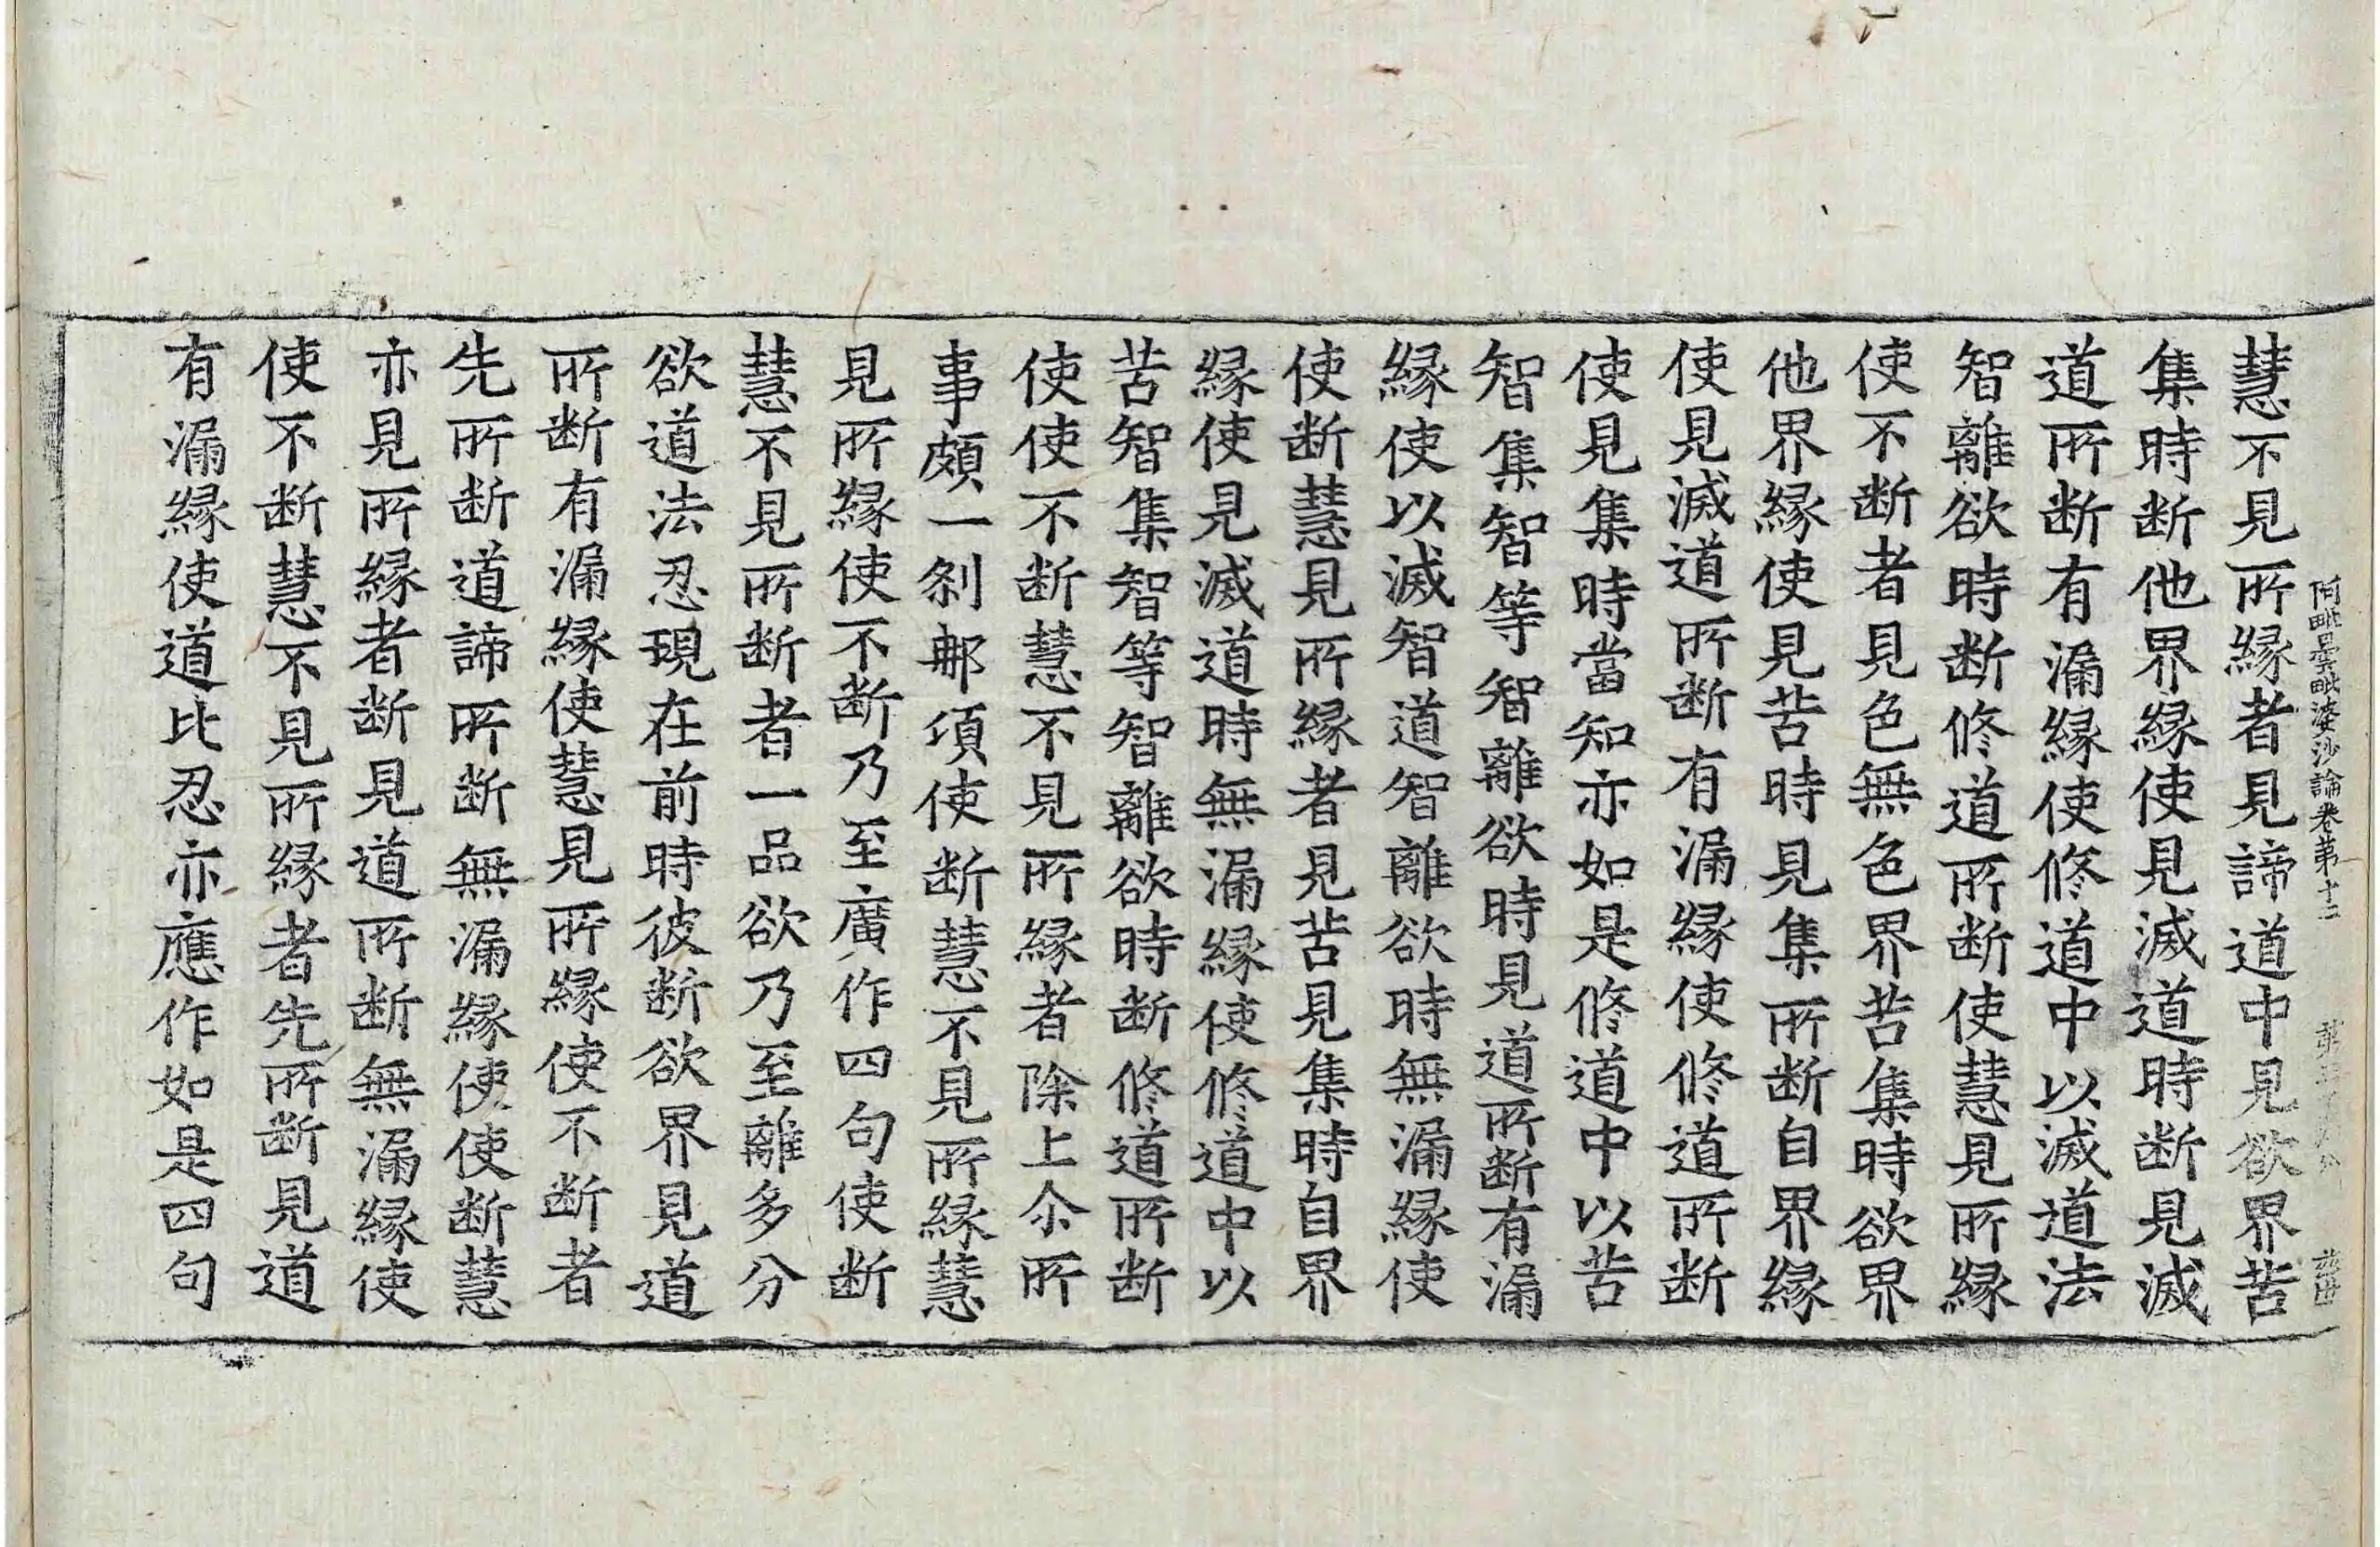 阿毗曇毗婆沙論卷第十二
慧不見所縁者見諦道中見欲界苦
集時断他界縁使見滅道時断見滅
道所断有漏縁使修道中以滅道法
智離欲時断修道所断使慧見所縁
使不断者見色無色界苦集時欲界
他界縁使見苦時見集所断自界縁
使見滅道所断有漏縁使修道所断
使見集時當知亦如是修道中以苦
智集智等智離欲時見道所断有漏
縁使以滅智道智離欲時無漏縁使
使断慧見所縁者見苦見集時自界
縁使見滅道時無漏縁使修道中以
苦智集智等智離欲時断修道所断
使使不断慧不見所縁者除上尒所
事頗一剎那項使断慧不見所縁慧
見所縁使不断乃至廣作四句使断
慧不見所断者一品欲乃至離多分
欲道法忍現在前時彼断欲界見道
所断有漏縁使慧見所縁使不断者
先所断道諦所断無漏縁使使断慧
亦見所縁者断見道所断無漏縁使
使不断慧不見所縁者先所断見道
有漏縁使道比忍亦應作如是四句